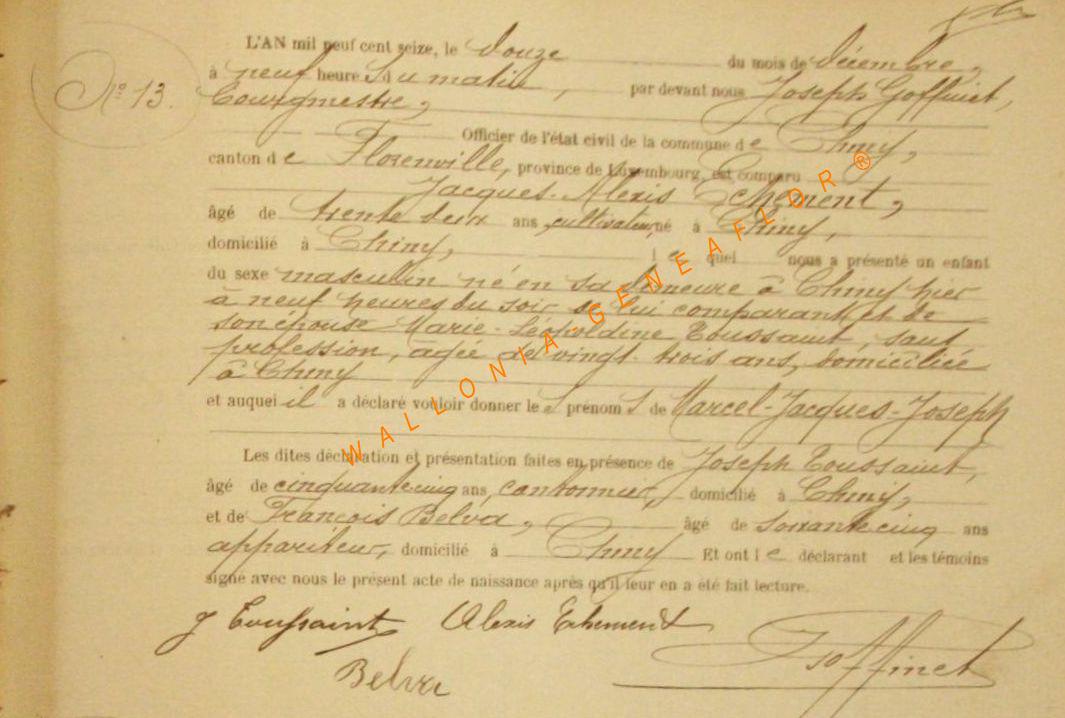 L'AN mil neuf cent seize, le douze du mois de décembre,
Nº 13.
à neuf heures du matin, par devant nous Joseph Goffinet,
Bourgmestre,
Officier de l'état civil de la commune de Chiny,
canton de Florenville, province de Luxembourg, est comparu
Jacques-Alexis Echement,
âgé de trente deux ans, cultivateur, né à Chiny,
domicilié à Chiny, lequel nous a présenté un enfant
du sexe masculin né en sa demeure à Chiny hier
à neuf heures du soir de lui comparant et de
son épouse Marie-Léopoldine Toussaint, sans
profession, agée de vingt trois ans, domiciliée
à Chiny
et auquel il a déclaré vouloir donner les prénoms de Marcel-Jacques-Joseph
Les dites déclaration et présentation faites en présence de Joseph Toussaint,
âgé de cinquante cinq ans, cantonnier, domicilié à Chiny,
et de François Belva, âgé de soixante cinq ans
appariteur, domicilié à Chiny Et ont le déclarant et les témoins
signé avec nous le présent acte de naissance après qu'il leur en a été fait lecture.
J Toussaint Alexis Echement
Goffinet
Belva
WALLONIA-GENEAFLOR®